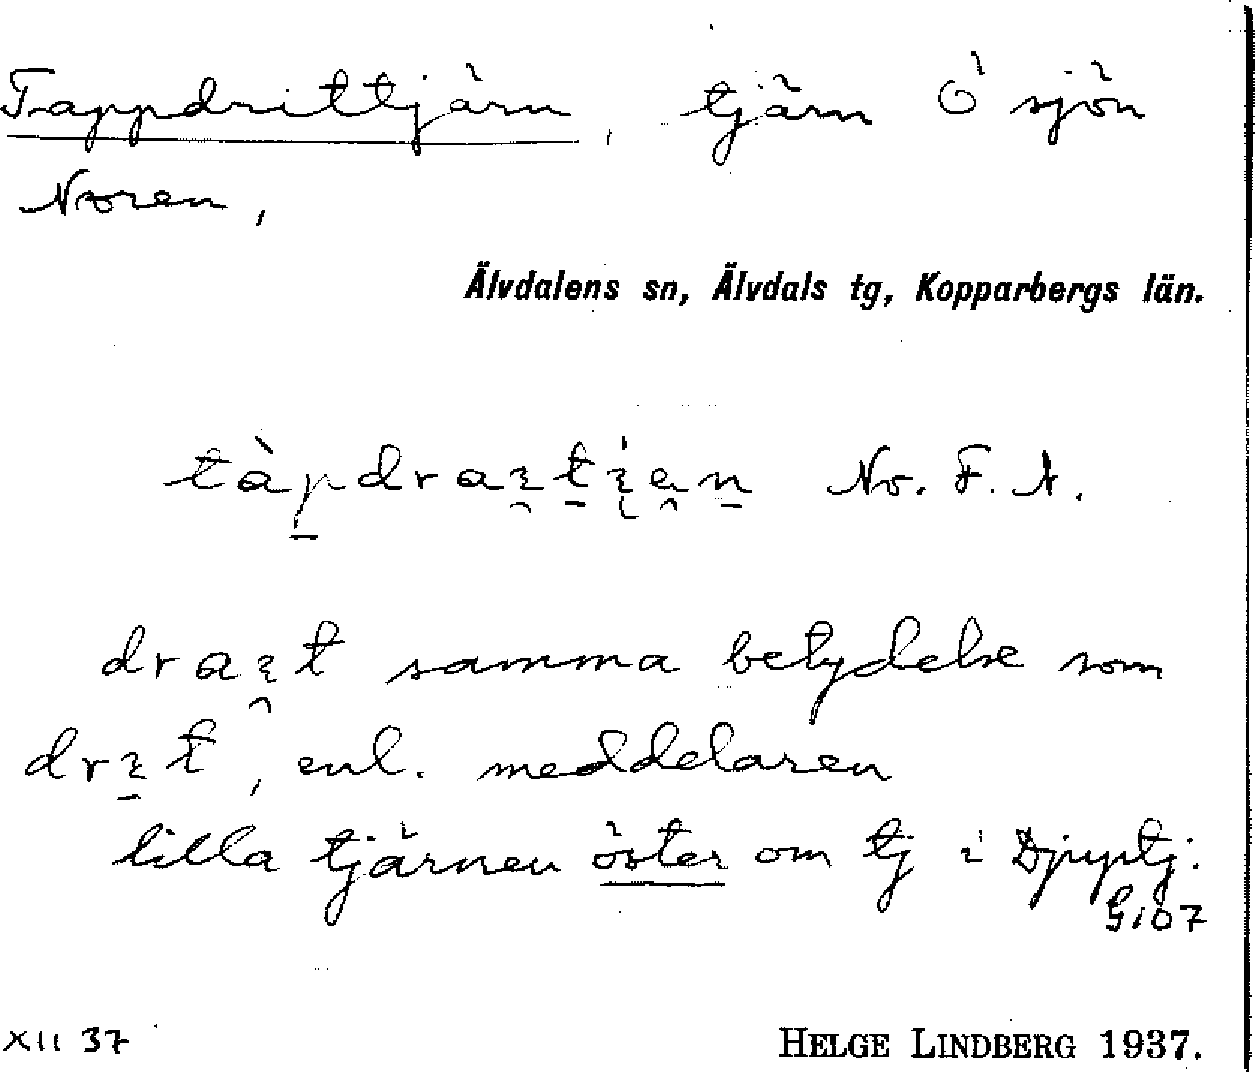 Tappdrittjärn, tjärn Ö sjön
Noren,
Älvdalens sn, Älvdals tg, Kopparbergs län.
tàpdraɩtɩ̯ən No. F. A.
draɩt samma betydelse som
drɩt, enl. meddelaren
lilla tjärnen öster om tj i Djuptj.
G107
XII 37
HELGE LINDBERG 1937.